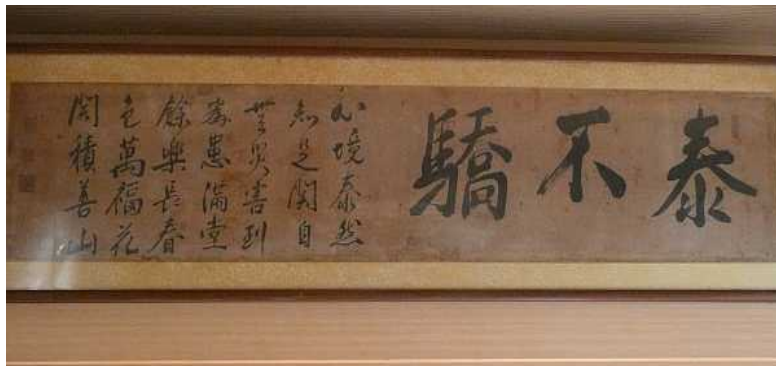 泰不驕
心境泰然
知足閑自
無災害到
滿堂
餘樂長春
色萬福花
開積善山